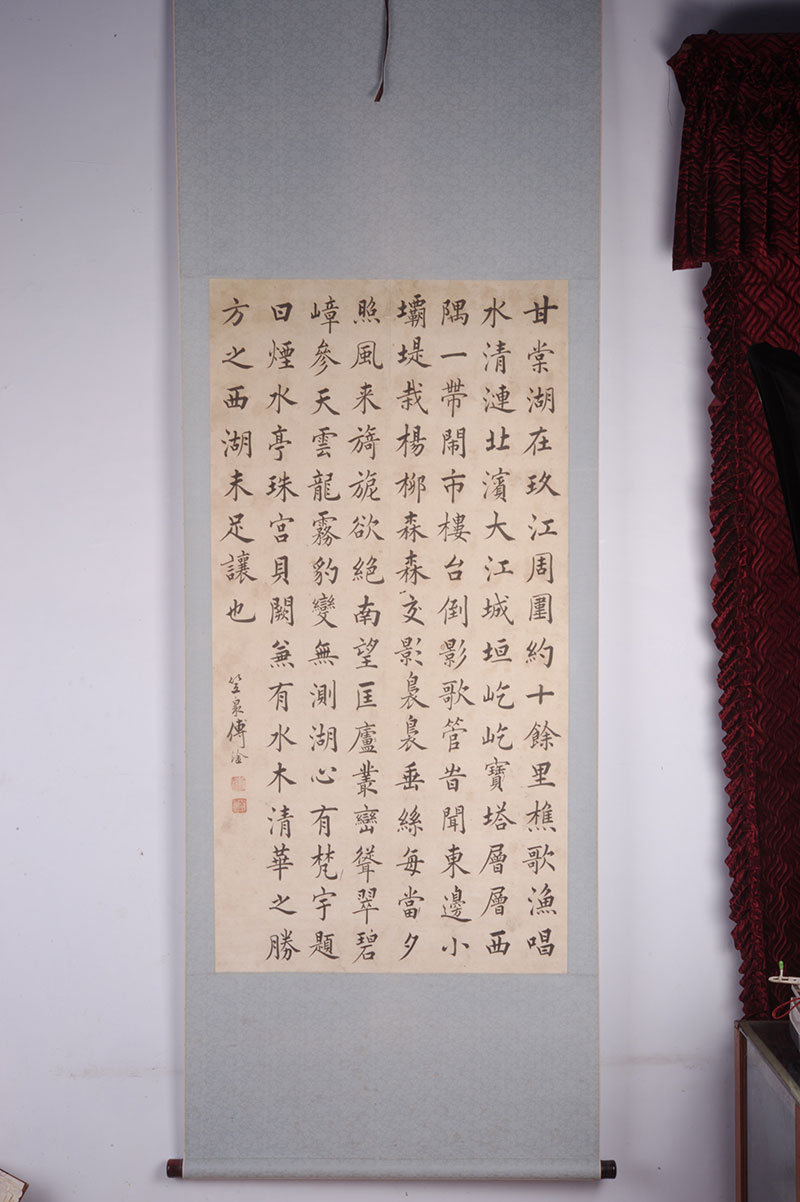 甘棠湖在玖江周圍約十餘里樵歌漁唱
水清漣北濱大江城垣屹屹寶塔層層西
隅一帶鬧市樓台倒影歌管昔聞東邊小
壩堤栽楊柳森森交影裊裊垂絲每當夕
照風来旖旎欲絕南望匡廬叢巒聳翠碧
嶂參天雲龍霧豹變無測湖心有梵宇題
曰煙水亭珠宮貝闕兼有水木清華之勝
方之西湖未足讓也
傅淦